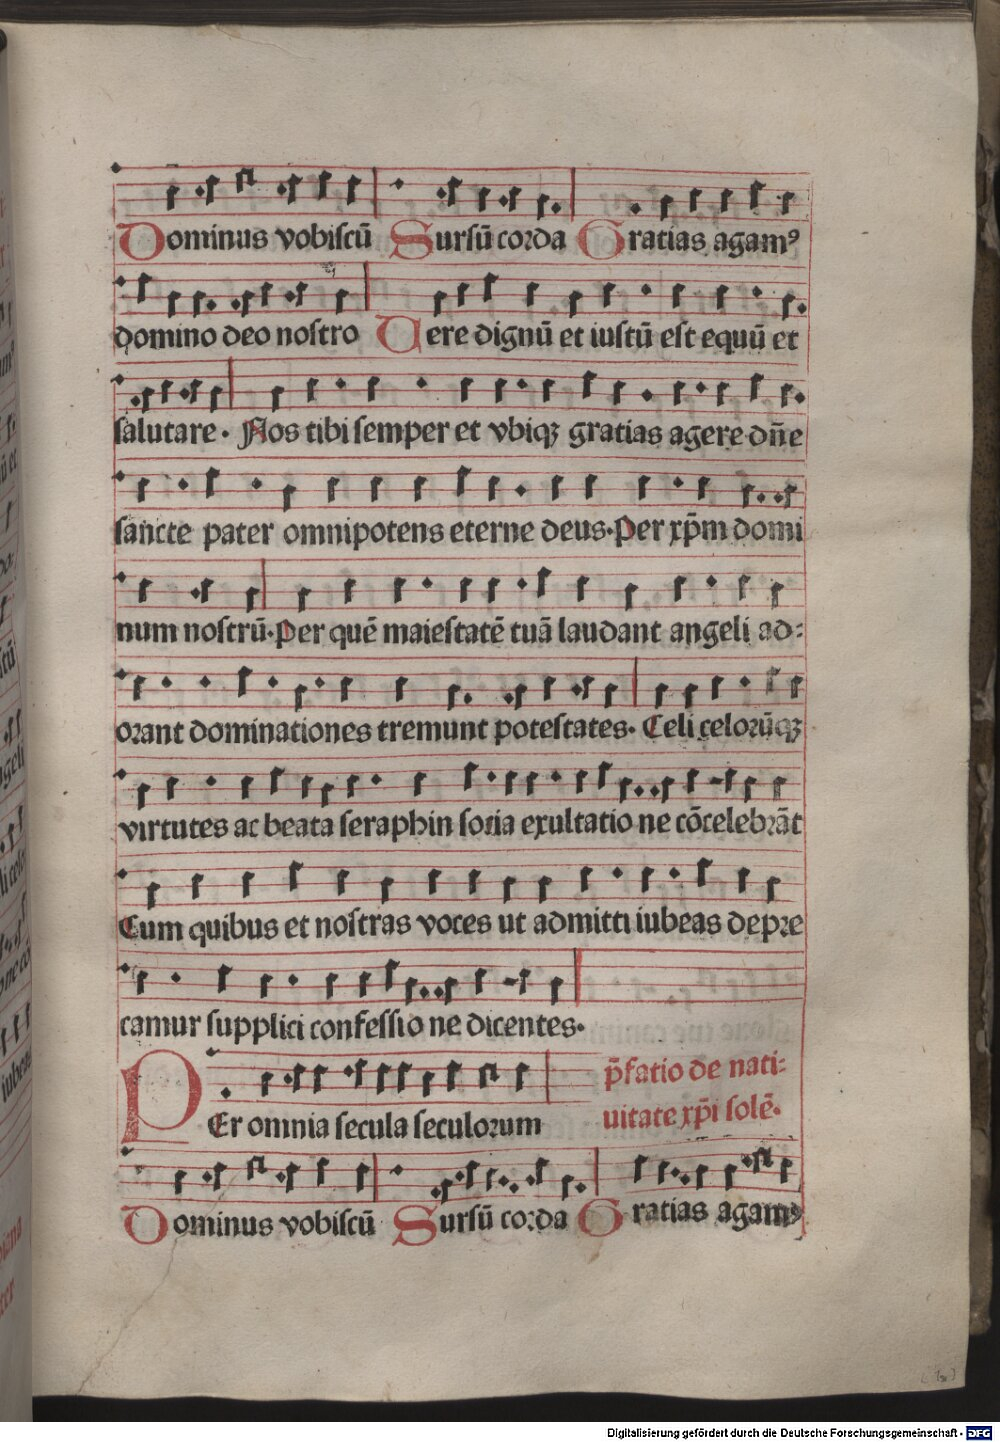 Dominus vobiscū Sursū corda Gratias agamꝰ
domino deo nostro Vere dignū et iustū est equū et
salutare. Nos tibi semper et vbiqꝫ gratias agere dn̄e
sancte pater omnipotens eterne deus. Per xp̄m domi
num nostrū. Per quē maiestatē tuā laudant angeli ad:
orant dominationes tremunt potestates. Celi celorūqꝫ
virtutes ac beata seraphin socia exultatio ne cōcelebrāt
Cum quibus et nostras voces ut admitti iubeas depre
camur supplici confessio ne dicentes.
p̄fatio de nati:
PEr omnia secula seculorum
uitate xp̄i solē.
Dominus vobiscū Sursū corda Gratias agamꝰ
Digitalisierung gefördert durch die Deutsche Forschungsgemeinschaft - DFG